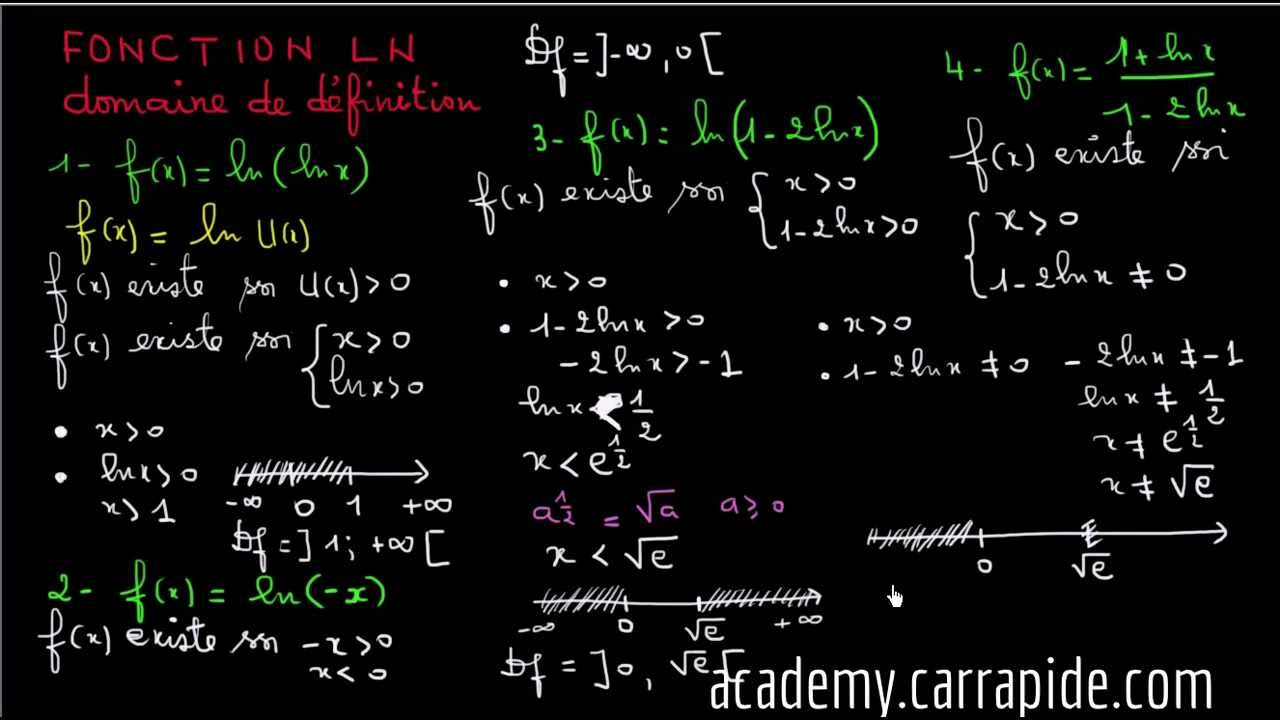 FONCTION LN
domaine de définition
1- f(x) = ln(lnx)
f(x) = ln U(x)
f(x) existe ssi U(x) > 0
f(x) existe ssi { x > 0
lnx > 0
• x > 0
• lnx > 0
x > 1
-∞ 0 1 +∞
Df = ]1; +∞[
2- f(x) = ln(-x)
f(x) existe ssi -x > 0
x < 0
Df = ]-∞, 0[
3- f(x) = ln(1-2lnx)
f(x) existe ssi { x > 0
1-2lnx > 0
• x > 0
• 1-2lnx > 0
-2lnx > -1
lnx < 1/2
x < e^1/2
a^1/2 = √a a ≥ 0
x < √e
-∞ 0 √e +∞
Df = ]0, √e[
4- f(x) = (1+lnx)/(1-2lnx)
f(x) existe ssi
{ x > 0
1-2lnx ≠ 0
• x > 0
• 1-2lnx ≠ 0 -2lnx ≠ -1
lnx ≠ 1/2
x ≠ e^1/2
x ≠ √e
0 √e
academy.carrapide.com